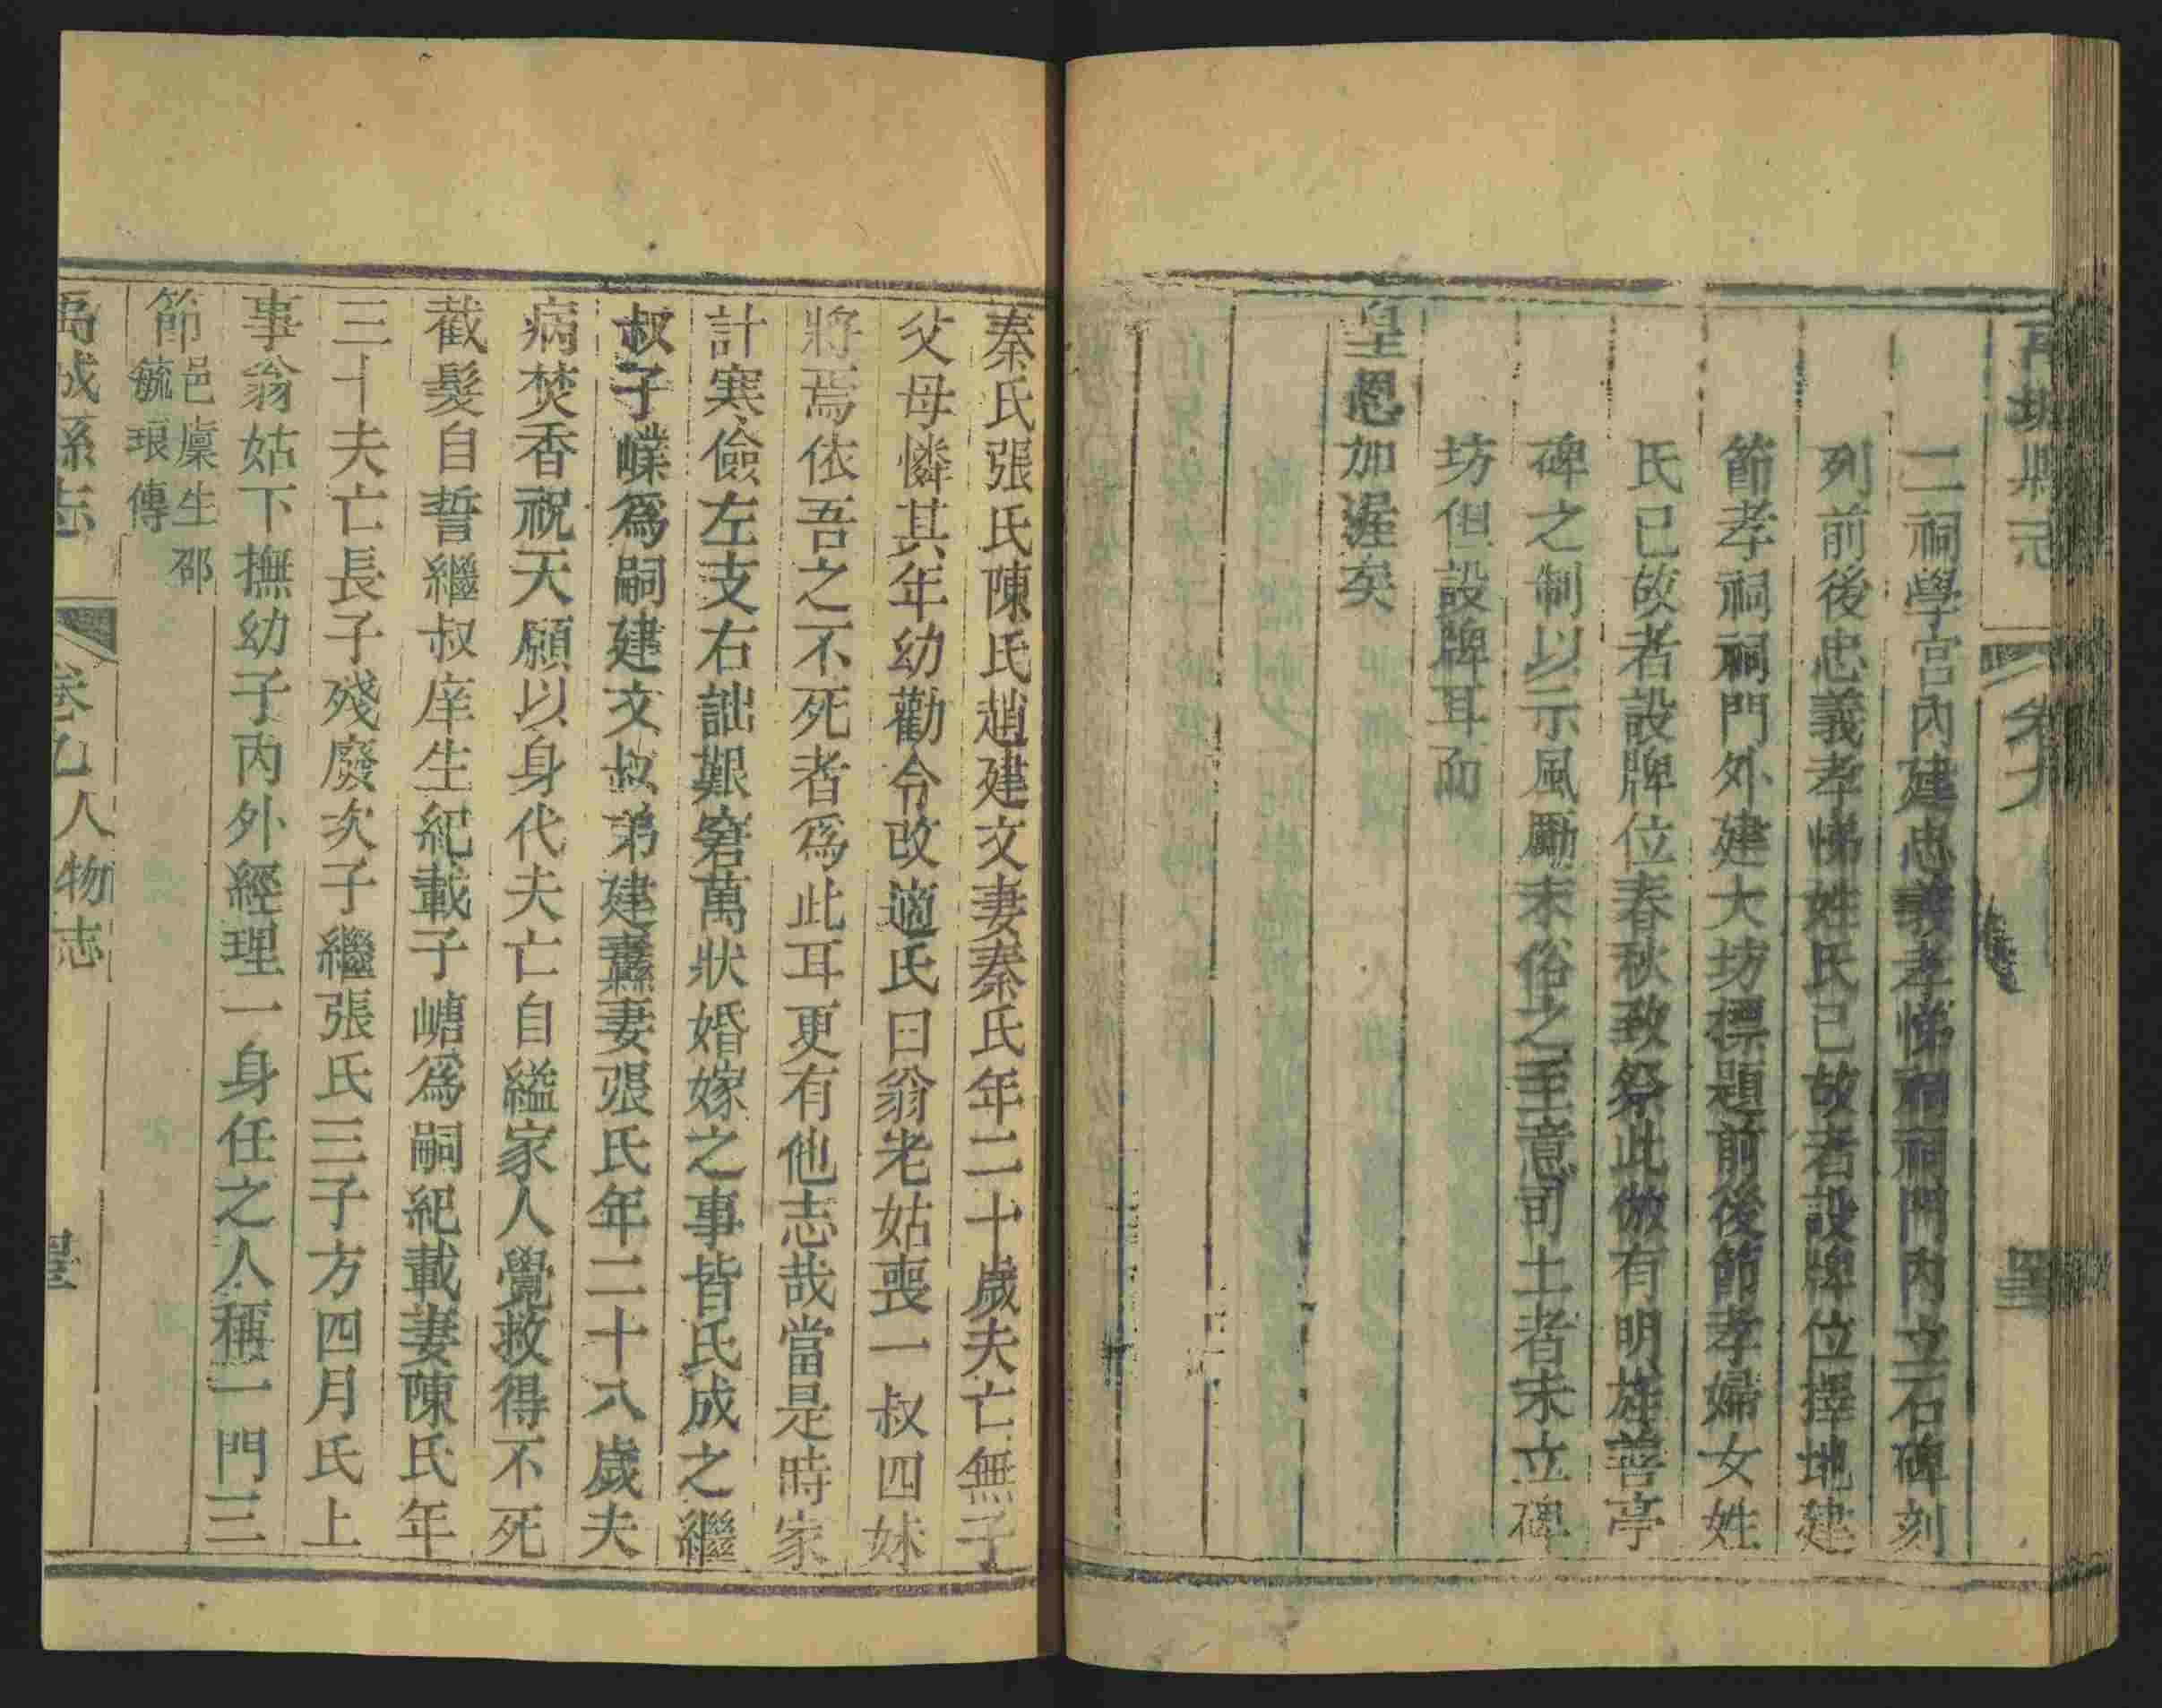 禹城縣志 卷九
二祠學宮內建忠義孝悌祠祠門內立石碑刻
列前後忠義孝悌姓氏已故者設牌位擇地建
節孝祠祠門外建大坊標題前後節孝婦女姓
氏已故者設牌位春秋致祭此倣有明旌善亭
碑之制以示風勵末俗之至意司土者未立碑
坊但設牌耳而
皇恩加渥矣
秦氏張氏陳氏趙建文妻秦氏年二十歲夫亡無子
父母憐其年幼勸令改適氏曰翁老姑喪一叔四妹
將焉依吾之不死者為此耳更有他志哉當是時家
計寒儉左支右詘艱窘萬狀婚嫁之事皆氏成之繼
叔子㠔爲嗣建文叔弟建纛妻張氏年二十八歲夫
病焚香祝天願以身代夫亡自縊家人覺救得不死
截髮自誓繼叔庠生紀載子嵣爲嗣紀載妻陳氏年
三十夫亡長子殘廢次子繼張氏三子方四月氏上
事翁姑下撫幼子內外經理一身任之人稱一門三
節邑廩生邵
毓琅傳
禹城縣志 卷九人物志